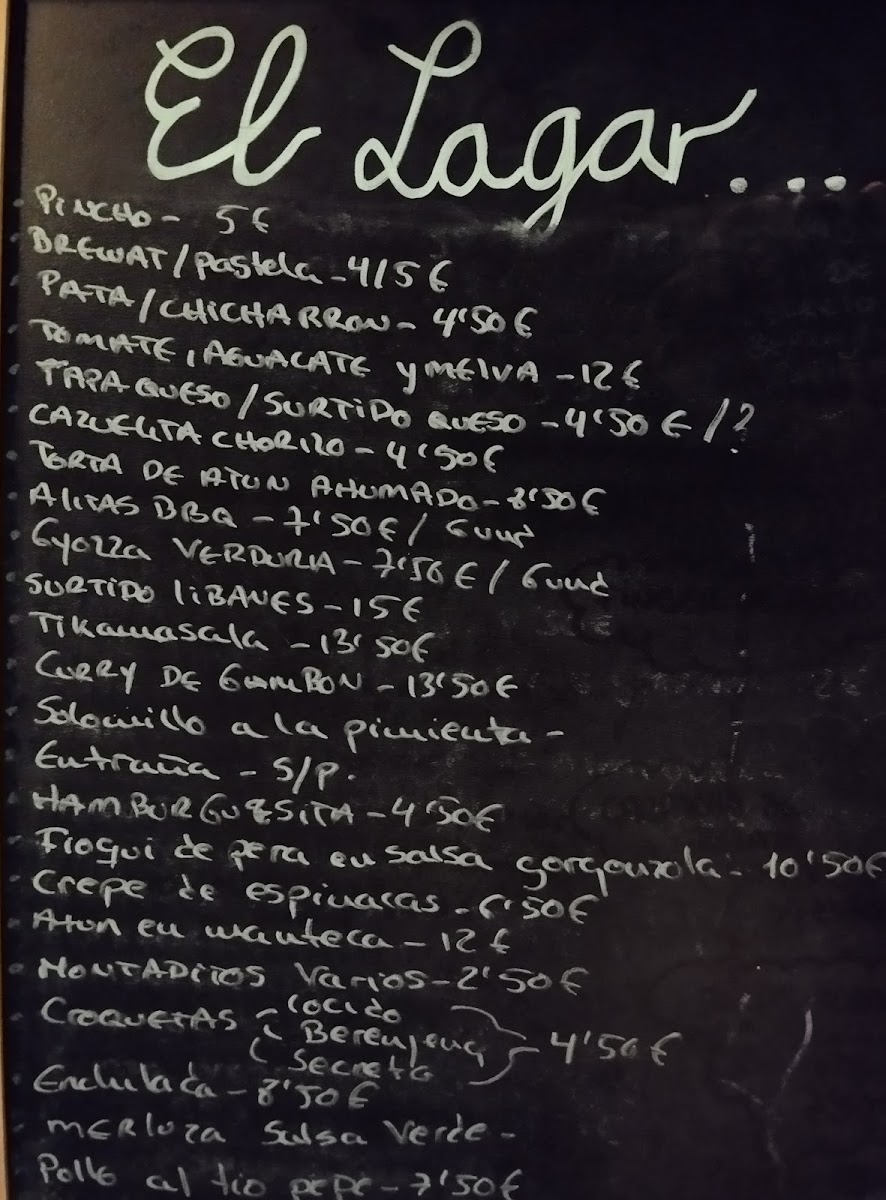 El Lagar...
PINCHO - 5€
BREWAT/pastela - 4/5€
PATA/CHICHARRON - 4'50€
TOMATE, AGUACATE y MELVA - 12€
TAPA QUESO/SURTIDO QUESO - 4'50€/?
CAZUELITA CHORIZO - 4'50€
TORTA DE ATUN AHUMADO - 8'50€
ALITAS BBQ - 7'50€/6 und
Gyozza VERDURIA - 7'50€/6 und
SURTIDO LIBANES - 15€
Tikamasala - 13'50€
CURRY DE GAMBON - 13'50€
Solomillo a la pimienta -
Entraña - S/P.
HAMBURGUESITA - 4'50€
Fioqui de pera en salsa gorgonzola - 10'50€
Crepe de espinacas - 6'50€
Atun en manteca - 12€
MONTADITOS Varios - 2'50€
CROQUETAS - Cocido
Berenjena - 4'50€
Secreto
Enchilada - 8'50€
MERLUZA Salsa Verde -
Pollo al tio pepe - 7'50€